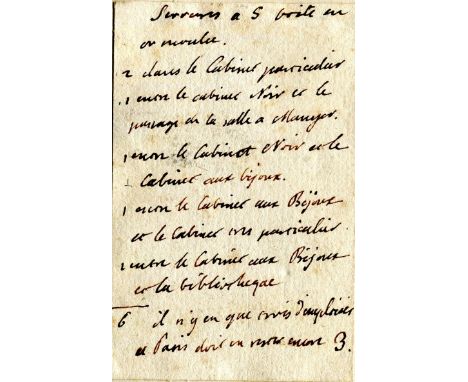 Serrures a S boite en
or moulu.
2 dans le Cabinet particulier
1 entre le cabinet Noir et le
passage de la salle a Manger.
1 entre le Cabinet Noir et le
Cabinet aux bijoux.
1 entre le Cabinet aux Bijoux
et le Cabinet tres particulier.
1 entre le Cabinet aux Bijoux
et la bibliotheque
6 il n'y en que trois d'emploiées
et Paris doit en encore 3.